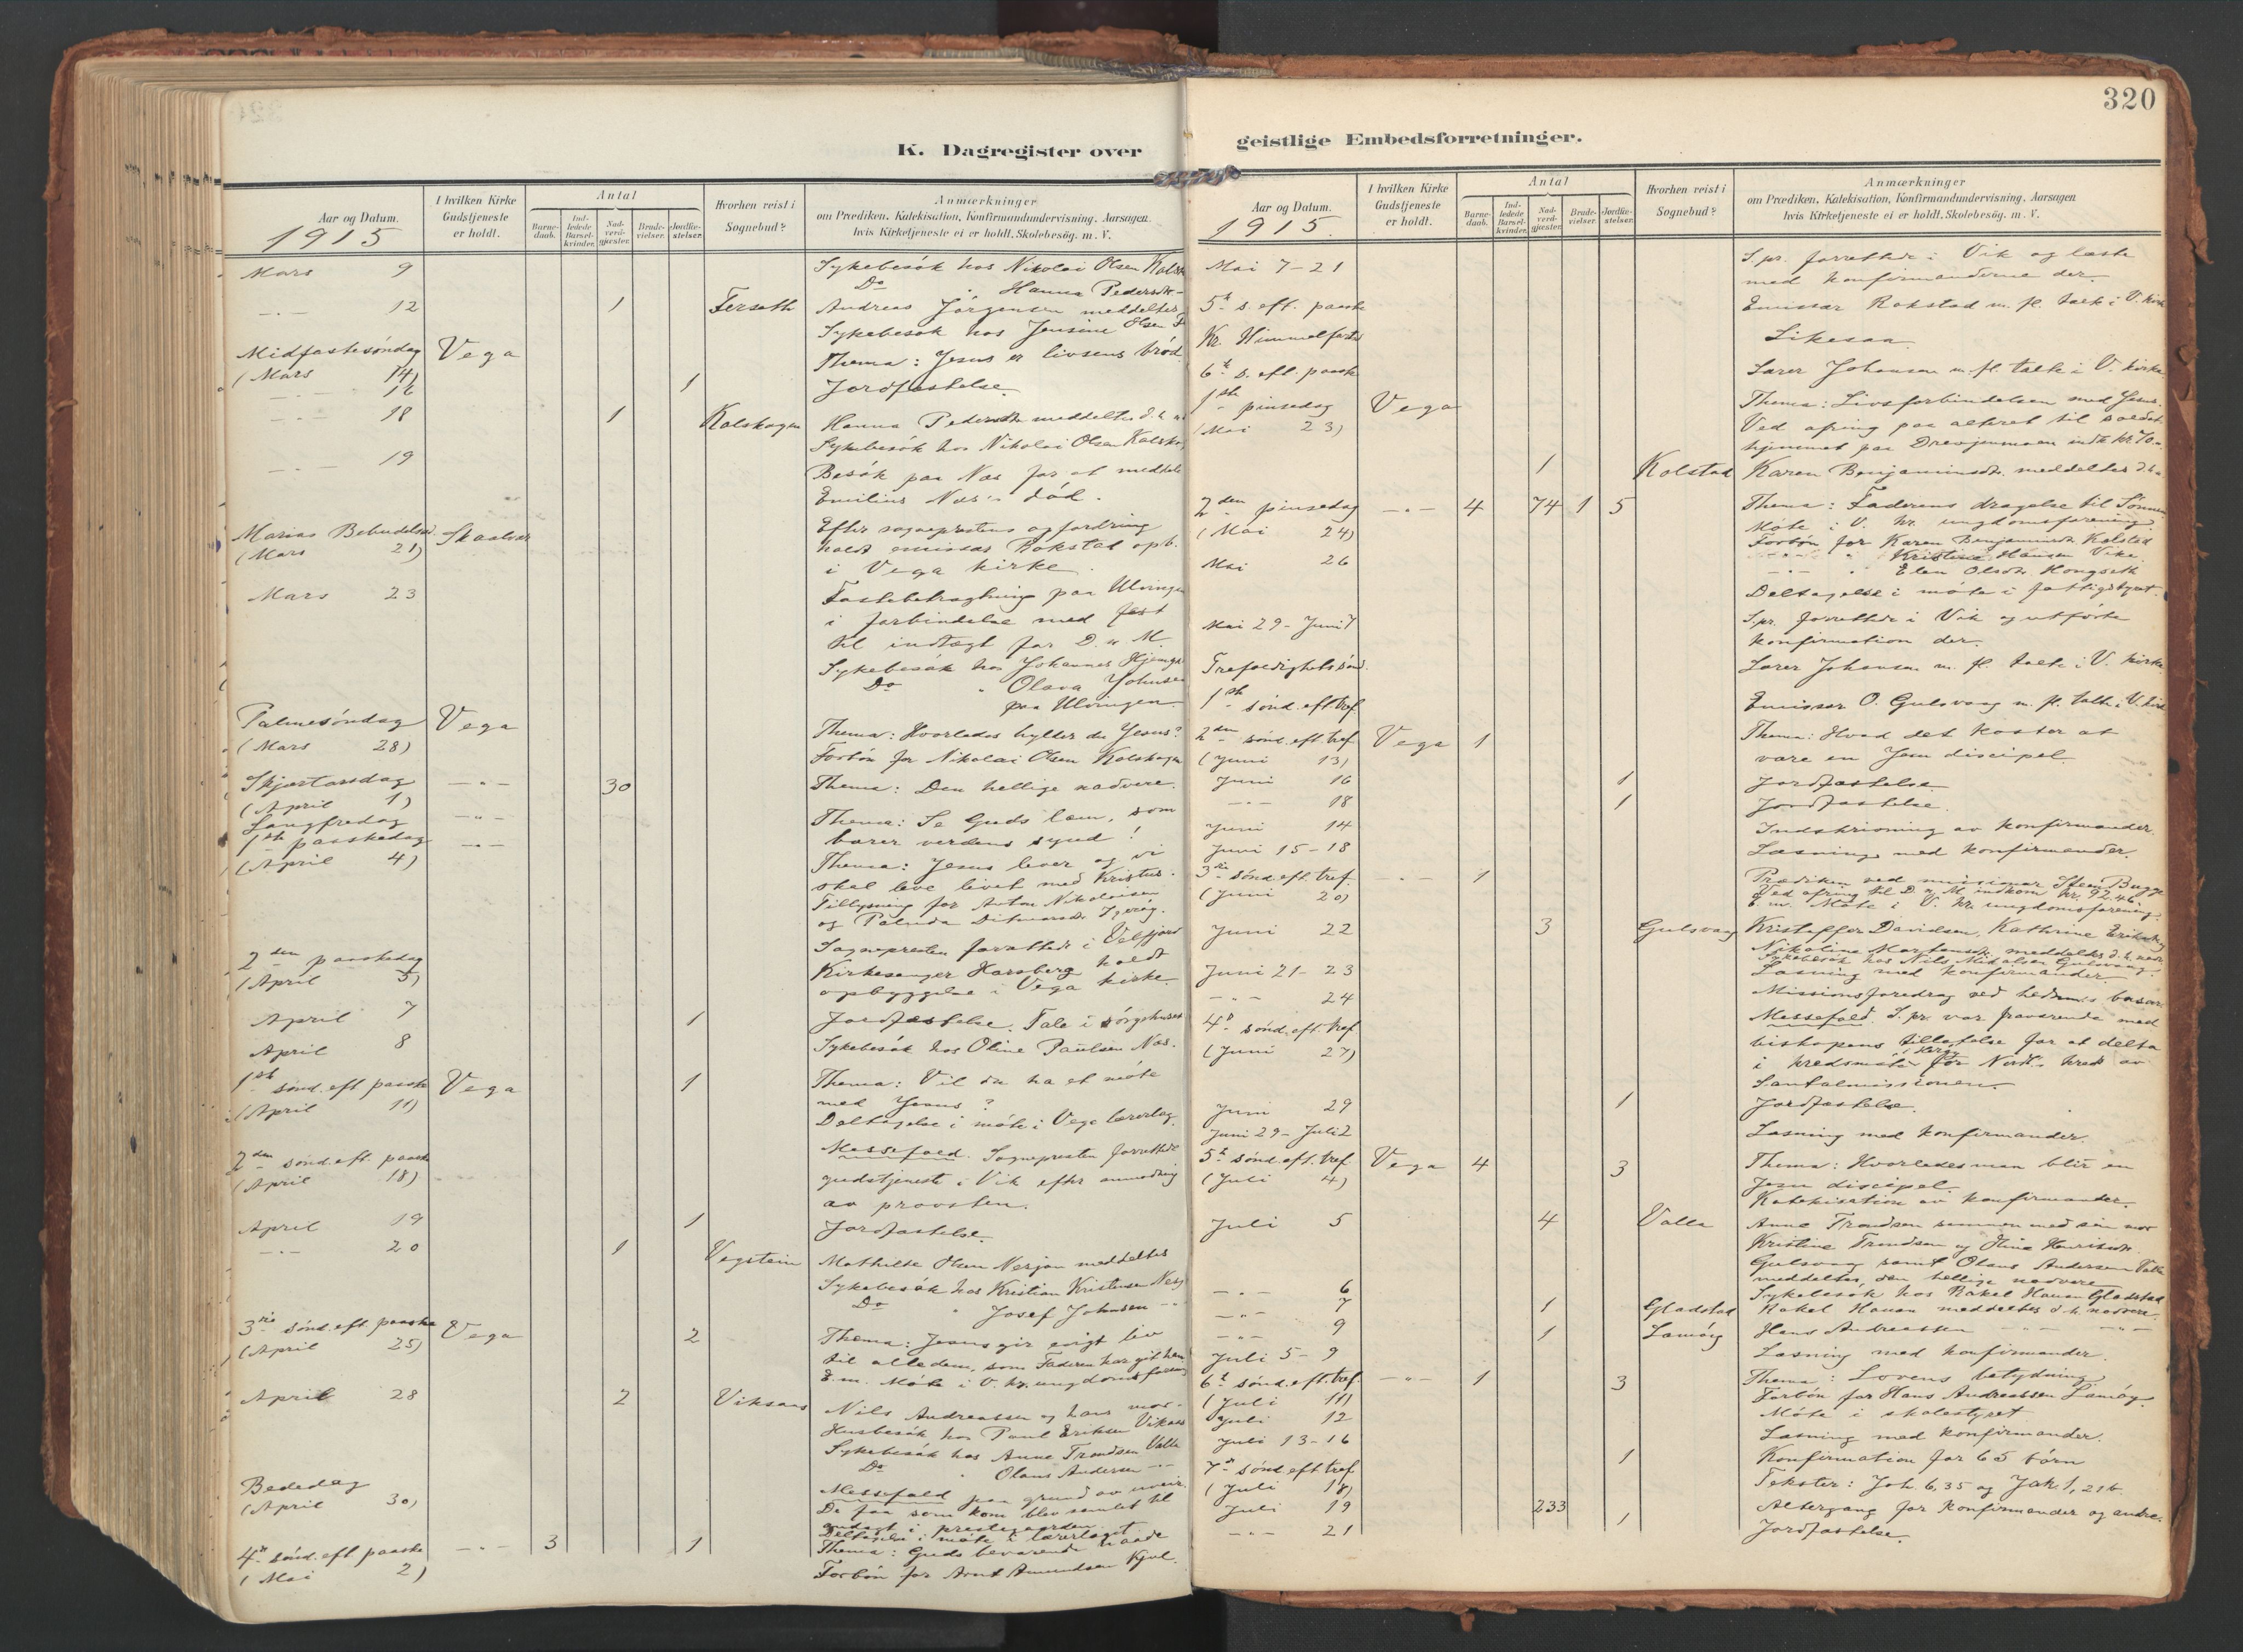 320
K. Dagregister over
geistlige Embedsforretninger.
Aar og Datum.
1915
I hvilken Kirke
Gudstjeneste
er holdt.
Antal
Barne-
daab.
Ind-
ledede
Barsel-
kvinder.
Nad-
verd-
gjæster.
Brude-
vielser.
Jordfæ-
stelser.
Hvorhen reist i
Sognebud?
Anmærkninger
om Prædiken, Katekisation, Konfirmandundervisning, Aarsagen,
hvis Kirketjeneste ei er holdt, Skolebesøg, m. V.
Mars 9 Sykebesøk hos Nikolai Olsen
Do " Hanna Pedersdtr
—"— 12 1 Andreas Jörgensen meddeltes
Sykebesøk hos Jensine Olsen
Midfastesöndag Vega Thema: Jesus er livsens bröd.
(Mars 14)
—"— 16 1 Jordfæstelse.
—"— 18 1 Kolskagen Hanna Pedersdtr meddeltes d. h.
Sykebesök hos Nikolai Olsen
—"— 19 Besök paa Næs for at meddele
Emilius Næs's död.
Marias Bebudelsesd. Skaalvær Efter sogneprestens opfordring
(Mars 21) holdt emissær Rokstad opb.
i Vega kirke.
Mars 23 Fastebetragtning paa Ulvingen
i forbindelse med fest
til indtægt for D. n. M.
Sykebesök hos Johannes
Do " Olava Johnsen
paa Ulvingen
Palmesöndag Vega Thema: Hvorledes hylder du Jesus?
(Mars 28) Forbön for Nikolai Olsen Kolskagen
Skjærtorsdag —"— 30 Thema: Den hellige nadvere.
(April 1)
Langfredag —"— Thema: Se Guds lam, som
bærer verdens synd!
1ste paaskedag —"— Thema: Jesus lever og vi
(April 4) skal leve livet med Kristus.
Tillysning for Anton Nikolaisen
og Palmda
2den paaskedag Sognepresten forrettede i Velfjord
(April 5) Kirkesanger Hareberg holdt
opbyggelse i Vega kirke.
April 7 1 Jordfæstelse. Tale i sörgehuset
April 8 Sykebesök hos Oline Paulsen Næs.
1ste sönd. eft paaske Vega 1 Thema: Vil du ha et möte
(April 11) med Jesus?
Deltagelse i möte i Vega lærerlag.
2den sönd. eft. paaske Messefald. Sognepresten forrettede
(April 18) gudstjeneste i Vik efter anmodning
av provsten.
April 19 1 Jordfæstelse.
—"— 20 1 Vegstein Mathilde Olsen meddeltes
Sykebesök hos Kristian Kristensen
Do " Josef Johnsen —"
3die sönd. eft paaske Vega 2 Thema: Jesus gir evigt liv
(April 25) til alle dem, som Faderen har git ham
E. m. Möte i V. kr. ungdomsforening
April 28 2 Viksaas Nils Andreassen og hans mor.
Husbesök hos Paul Eriksen Viksaas
Sykebesök hos Anne Trondsen Valla
Do " Olaus Andersen —"—
Bededag Messefald paa grund av uveir.
(April 30) De faa som kom blev samlet til
andagt i prestegaarden.
Deltagelse i möte i lærerlaget
4de sönd. eft paaske —"— 3 1 Thema: Guds bevarende naade
(Mai 2) Forbön for Arnt Amundsen Kjul.
Aar og Datum.
1915.
I hvilken Kirke
Gudstjeneste
er holdt.
Antal
Barne-
daab.
Ind-
ledede
Barsel-
kvinder.
Nad-
verd-
gjæster.
Brude-
vielser.
Jordfæ-
stelser.
Hvorhen reist i
Sognebud?
Anmærkninger
om Prædiken, Katekisation, Konfirmandundervisning, Aarsagen
hvis Kirketjeneste ei er holdt, Skolebesøg, m. V.
Mai 7-21 S.pr. forrettede i Vik og læste
med konfirmanderne der.
5te s. eft. paaske Emissær Rokstad m. fl. talte i V. kirke
Kr. Himmelfartsd. Likesaa.
6te s. eft. paaske Lærer Johansen m. fl. talte i V. kirke.
1ste pinsedag Vega Thema: Livsforbindelsen med Jesus.
(Mai 23) Ved ofring paa alteret til soldat-
hjemmet paa Drevjemoen indk. kr. 70.-
1 Kolstad Karen Benjaminsdtr. meddeltes d. h.
2den pinsedag —"— 4 74 1 5 Thema: Faderens dragelse til Sönnen
(Mai 24) Möte i V. kr. ungdomsforening.
Forbön for Karen Benjaminsdtr. Kolstad
—"— " Kristine Hansen Vika
—"— " Elen Olsdtr. Hongseth
Mai 26 Deltagelse i möte i fattigstyret.
Mai 29 - Juni 7 S.pr. forrettede i Vik og utförte
konfirmation der.
Trefoldighetssönd. Lærer Johansen m. fl. talte i V. kirke
1ste sönd. eft tref. Emissær O. Gulsvaag m. fl. talte i V. kirke
2den sönd. eft. tref Vega 1 Thema: Hvad det koster at
(Juni 13) være en Jesu discipel.
Juni 16 1 Jordfæstelse.
—"— 18 1 Jordfæstelse.
Juni 14 Indskrivning av konfirmander.
Juni 15-18 Læsning med konfirmander.
3die sönd. eft. tref. —"— 1 Prædiken ved missionær Steen Bugge
(Juni 20) Ved ofring til D. n. M. indkom kr. 92.46
E. m. Möte i V. kr. ungdomsforening.
Juni 22 3 Gulsvaag Kristoffer Davidsen, Kathrine
Nikoline Mortensdtr. meddeltes d. h. nadv.
Sykebesök hos Nils Mikalsen Gulsvaag.
Juni 21-23 Læsning med konfirmander.
—"— 24 Missionsforedrag ved basar
4de sönd. eft. tref Messefald. S.pr. var fraværende med
(Juni 27) bispens tilladelse for at delta
i kredsmöte for Nordl. kreds av
Santalmissionen.
Juni 29 1 Jordfæstelse.
Juni 29 - Juli 2 Læsning med konfirmander.
5te sönd. eft. tref. Vega 4 3 Thema: Hvorledes man blir en
(Juli 4) Jesu discipel
Katekisation av konfirmander.
Juli 5 4 Valla Anne Trondsen sammen med sin mor
Kristine Trondsen og Stine Henriksdtr.
Gulsvaag samt Olaus Andersen Valla
meddeltes den hellige nadvere
—"— 6 Sykebesök hos Rakel Hansen Gladstad
—"— 7 1 Gladstad Rakel Hansen meddeltes d. h. nadvere.
—"— 9 1 Hans Andreassen —"— —"—
Juli 5-9 Læsning med konfirmander.
6te sönd. eft. tref. —"— 1 3 Thema: Lovens betydning
(Juli 11) Forbön for Hans Andreassen
Juli 12 Möte i skolestyret
Juli 13-16 Læsning med konfirmander.
7de sönd. eft tref 1 Konfirmation for 65 börn
(Juli 18) Tekster: Joh. 6,35 og Jak. 1, 21b.
Juli 19 233 Altergang for konfirmander og andre.
—"— 21 1 Jordfæstelse.